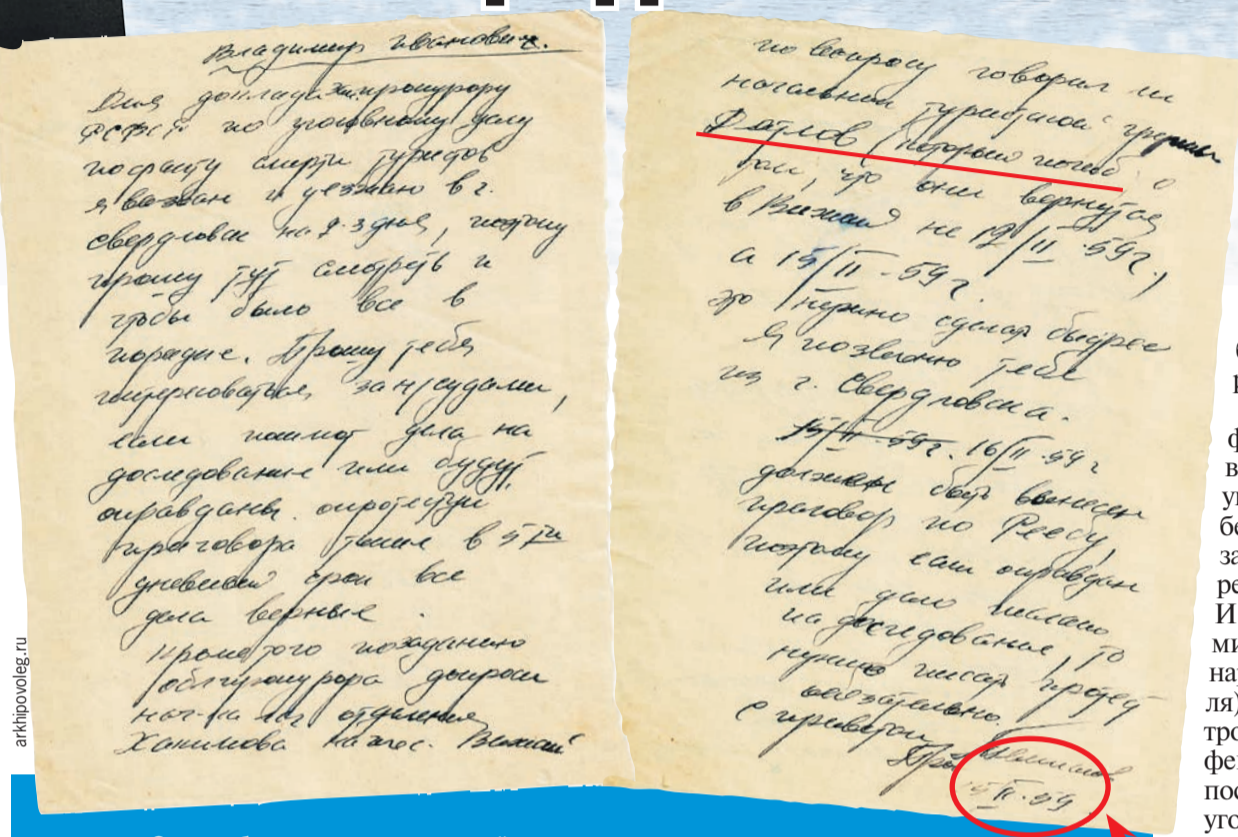 Владимир Иванович.
Для доклада зам. прокурору
РСФСР по уголовному делу
по факту смерти туристов
я вызван и уезжаю в г.
Свердловск на 2-3 дня, поэтому
прошу тут смотреть и
чтобы было все в
порядке. Прошу тебя
интересоваться за н/судами,
если пошлют дела на
доследование или будут
оправданы. опротестуй
приговора также в 5ти
дневный срок все
дела верные.
Кроме того по заданию
облпрокурора допроси
нач-ка отделения
Хакимова на пос. Вижай
по вопросу говорил ли
начальник туристской группы
Дятлов (который погиб) о
том, что они вернутся
в Вижай не 12/II-59г.,
а 15/II-59г.
это нужно сделать быстрее
Я позвоню тебе
из г. Свердловска.
15/II-59г. 16/II-59г
должен быть вынесен
приговор по Реесу,
поэтому если оправдан
или дело послано
на доследование, то
нужно писать протест
обязательно.
С приветом
15/II-59
arkhipovoleg.ru
ф
в
уг
бе
за
ре
И
ми
нар
ля)
тро
фе
пос
уго